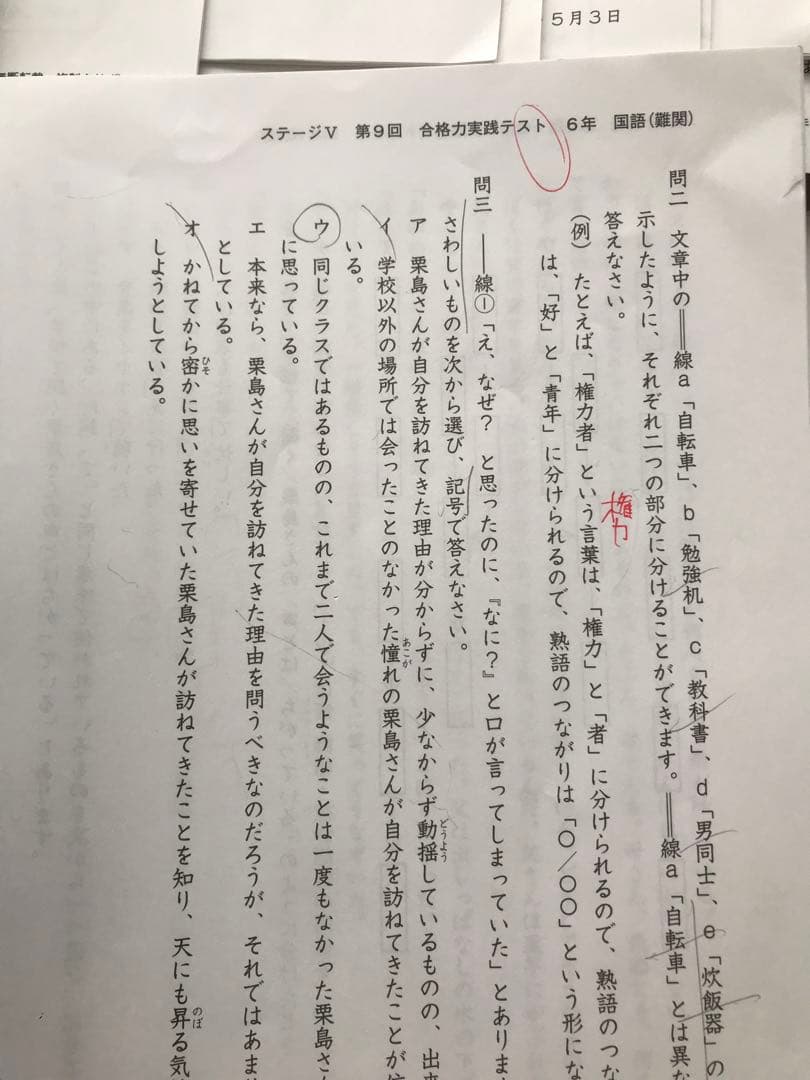 5月3日
ステージⅤ 第9回 合格力実践テスト 6年 国語(難関)
問二 文章中の══線a「自転車」、b「勉強机」、c「教科書」、d「男同士」、e「炊飯器」の
示したように、それぞれ二つの部分に分けることができます。══線a「自転車」とは異な
答えなさい。
(例) たとえば、「権力者」という言葉は、「権力」と「者」に分けられるので、熟語のつな
権力
は、「好」と「青年」に分けられるので、熟語のつながりは「〇/〇〇」という形にな
問三 ──線①「え、なぜ? と思ったのに、『なに?』と口が言ってしまっていた」とありま
さわしいものを次から選び、記号で答えなさい。
ア 栗島さんが自分を訪ねてきた理由が分からずに、少なからず動揺どうようしているものの、出来
イ 学校以外の場所では会ったことのなかった憧あこがれの栗島さんが自分を訪ねてきたことが信
いる。
ウ 同じクラスではあるものの、これまで二人で会うようなことは一度もなかった栗島さ
に思っている。
エ 本来なら、栗島さんが自分を訪ねてきた理由を問うべきなのだろうが、それではあま
としている。
オ かねてから密ひそかに思いを寄せていた栗島さんが訪ねてきたことを知り、天にも昇のぼる気
しようとしている。